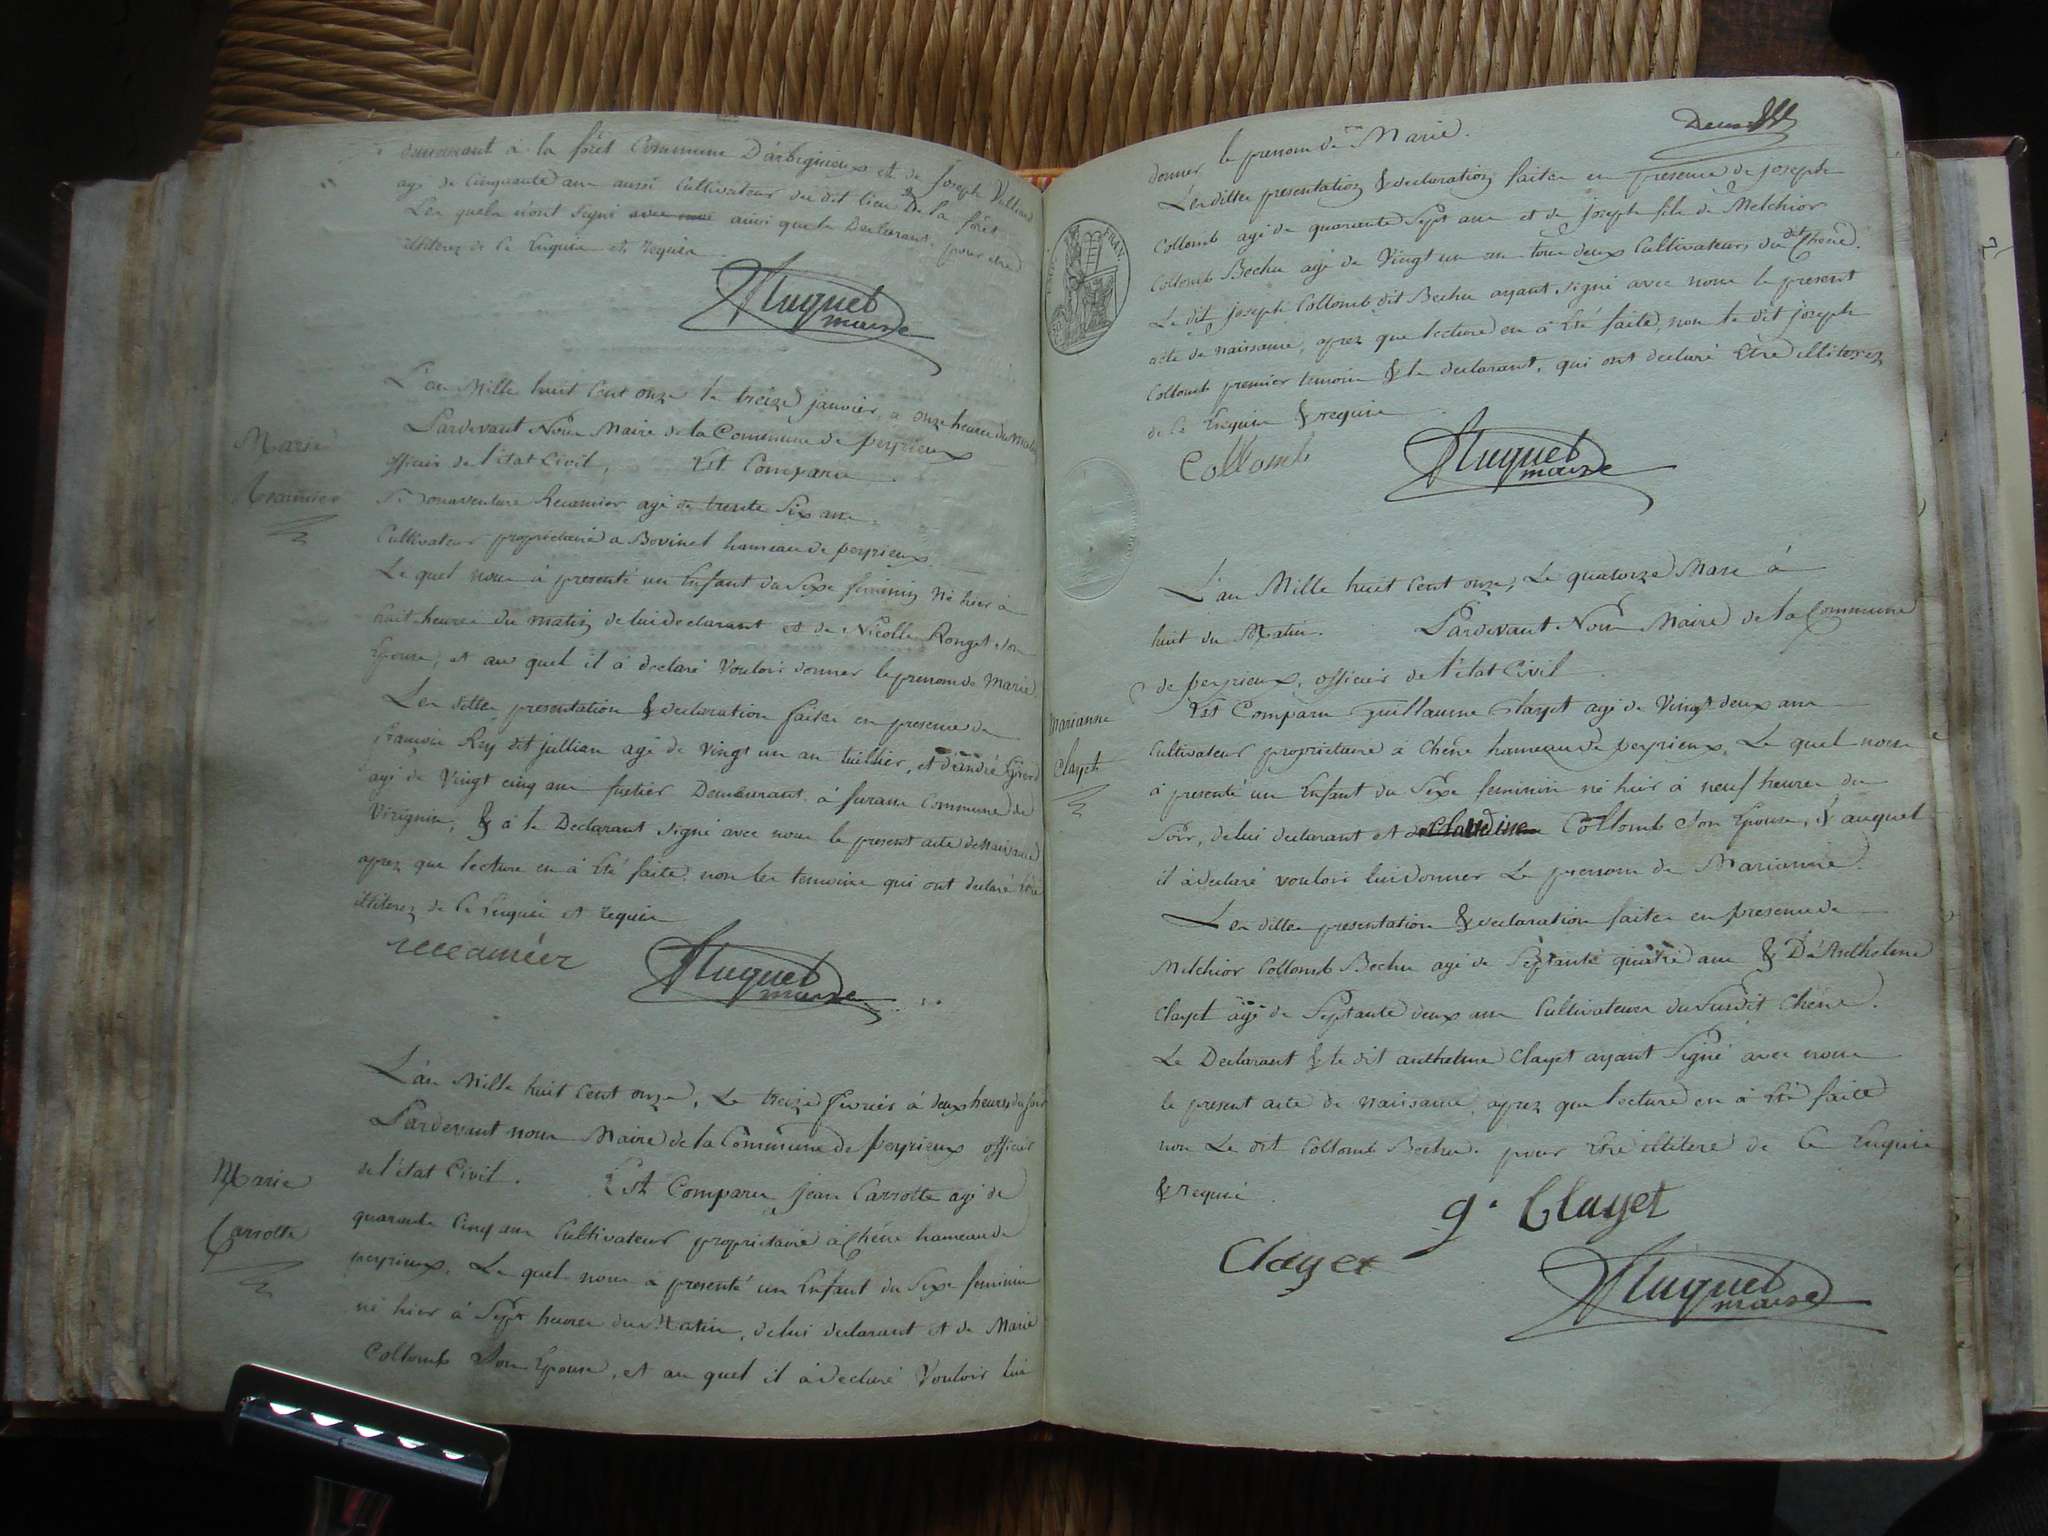 demeurant à la forêt Commune D'arbignieux et de Joseph
agé de Cinquante ans aussi Cultivateur du dit lieu de la forêt
Les quels n'ont signé avec nous ainsi que le Declarant, pour etre
illiterez de ce Enquis et requis
Huguet
maire
L'an Mille huit Cent onze le treize janvier, a onze heures du matin
Pardevant Nous Maire de la Commune de peyrieux
officier de l'état Civil, Est Comparu
Marie
Recamier
Sr Bonaventure Recamier agé de trente Six ans
Cultivateur propriétaire a Bovinel hameau de peyrieux
Le quel nous à presenté un Enfant du Sexe feminin né hier à
huit heures du matin de lui declarant et de Nicolle Ronget son
Epouse, et au quel il à declaré vouloir donner le prenom de Marie
Les dittes presentation & declaration faites en presence de
françois Rey dit jullian agé de vingt un an tuillier, et d'andré
agé de Vingt cinq ans fustier Demeurant à furans Commune de
Virignin, & à le Declarant signé avec nous le present acte de naissance
aprez que lecture en à Eté faite, non les temoins qui ont declaré être
illiterez de ce Enquis et requis
reccamier
Huguet
maire
L'an Mille huit Cent onze, Le treize fevrier à deux heures du soir
Pardevant nous Maire de la Commune de peyrieux officier
de l'état Civil. Est Comparu jean Carrotte agé de
Marie
Carrotte
quarante Cinq ans Cultivateur propriétaire à Chêne hameau de
peyrieux. Le quel nous à presenté un Enfant du Sexe feminin
né hier à Sept heures du Matin, de lui declarant et de Marie
Collomb Son Epouse, et au quel il à declaré Vouloir lui
donner le prenom de Marie.
Les dittes presentation & declaration faites en presence de joseph
Collomb agé de quarante Sept ans et de joseph fils de Melchior
Collomb Bechu agé de Vingt un an tous deux Cultivateurs du dit Chêne.
Le dit joseph Collomb dit Bechu ayant signé avec nous le present
acte de naissance, aprez que lecture en à Eté faite, non le dit joseph
Collomb premier temoin & le declarant, qui ont declaré Etre illiterez
de ce Enquis & requis
Collomb
Huguet
maire
L'an Mille huit Cent onze, Le quatorze Mars à
huit du Matin. Pardevant Nous Maire de la Commune
de peyrieux, officier de l'état Civil
Marianne
Clayet
Est Comparu Guillaume Clayet agé de Vingt deux ans
Cultivateur propriétaire à Chêne hameau de peyrieux, Le quel nous
à presenté un Enfant du Sexe feminin né hier à neuf heures du
Soir, de lui declarant et de Claudine Collomb Son Epouse, & auquel
il à declaré vouloir lui donner Le prenom de Marianne.
Les dittes presentation & declaration faites en presence de
Melchior Collomb Bechu agé de Septante quatre ans & D'Anthelme
Clayet agé de Septante deux ans Cultivateurs du Susdit Chêne.
Le Declarant & le dit anthelme Clayet ayant Signé avec nous
le present acte de naissance, aprez que lecture en à Eté faite
non Le dit Collomb Bechu. pour Etre illiteré de ce Enquis
& requis
g. Clayet
Clayet
Huguet
maire